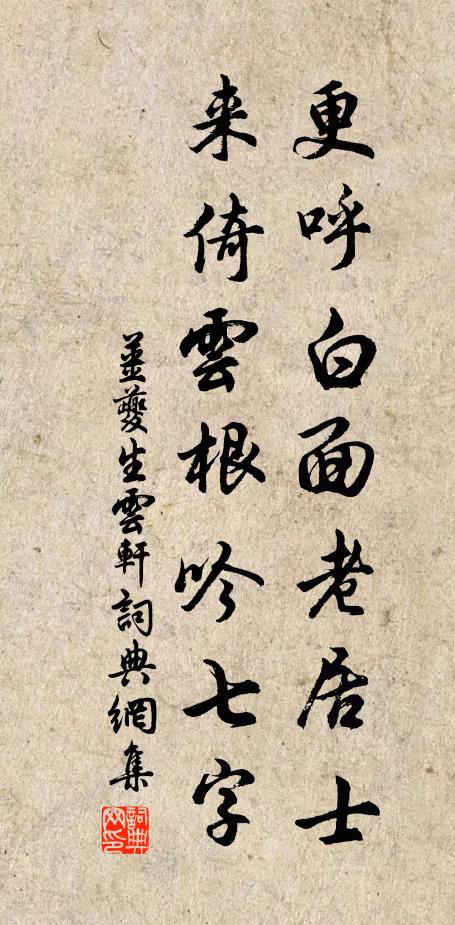 更呼白面老居士
来倚雲根吟七字
姜夔生雲軒詞典網集
詞典网印